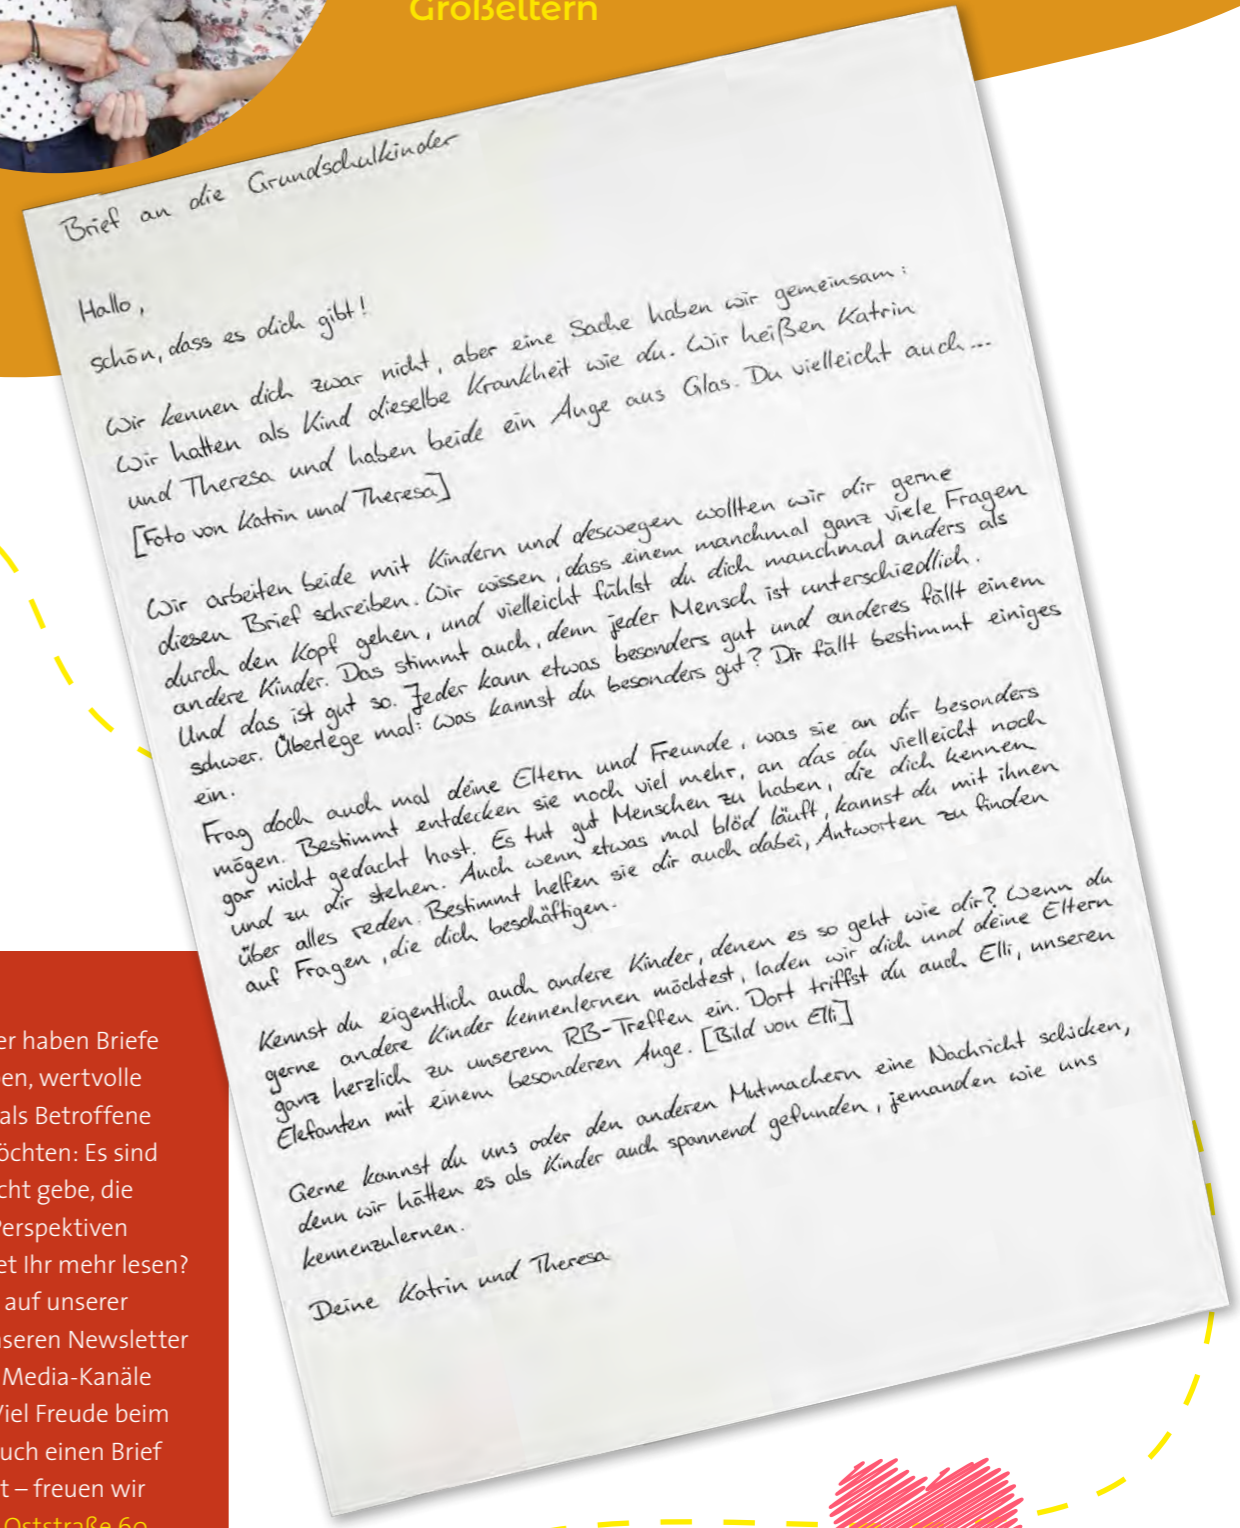 Großeltern
Brief an die Grundschulkinder
Hallo,
schön, dass es dich gibt!
Wir kennen dich zwar nicht, aber eine Sache haben wir gemeinsam:
Wir hatten als Kind dieselbe Krankheit wie du. Wir heißen Katrin
und Theresa und haben beide ein Auge aus Glas. Du vielleicht auch...
[Foto von Katrin und Theresa]
Wir arbeiten beide mit Kindern und deswegen wollten wir dir gerne
diesen Brief schreiben. Wir wissen, dass einem manchmal ganz viele Fragen
durch den Kopf gehen, und vielleicht fühlst du dich manchmal anders als
andere Kinder. Das stimmt auch, denn jeder Mensch ist unterschiedlich.
Und das ist gut so. Jeder kann etwas besonders gut und anderes fällt einem
schwer. Überlege mal: Was kannst du besonders gut? Dir fällt bestimmt einiges
ein.
Frag doch auch mal deine Eltern und Freunde, was sie an dir besonders
mögen. Bestimmt entdecken sie noch viel mehr, an das du vielleicht noch
gar nicht gedacht hast. Es tut gut Menschen zu haben, die dich kennen
und zu dir stehen. Auch wenn etwas mal blöd läuft, kannst du mit ihnen
über alles reden. Bestimmt helfen sie dir auch dabei, Antworten zu finden
auf Fragen, die dich beschäftigen.
Kennst du eigentlich auch andere Kinder, denen es so geht wie dir? Wenn du
gerne andere Kinder kennenlernen möchtest, laden wir dich und deine Eltern
ganz herzlich zu unserem RB-Treffen ein. Dort triffst du auch Elli, unseren
Elefanten mit einem besonderen Auge. [Bild von Elli]
Gerne kannst du uns oder den anderen Mutmachern eine Nachricht schicken,
denn wir hätten es als Kinder auch spannend gefunden, jemanden wie uns
kennenzulernen.
Deine Katrin und Theresa
er haben Briefe
en, wertvolle
als Betroffene
öchten: Es sind
cht gebe, die
Perspektiven
et Ihr mehr lesen?
auf unserer
nseren Newsletter
Media-Kanäle
Viel Freude beim
uch einen Brief
t – freuen wir
Oststraße 60